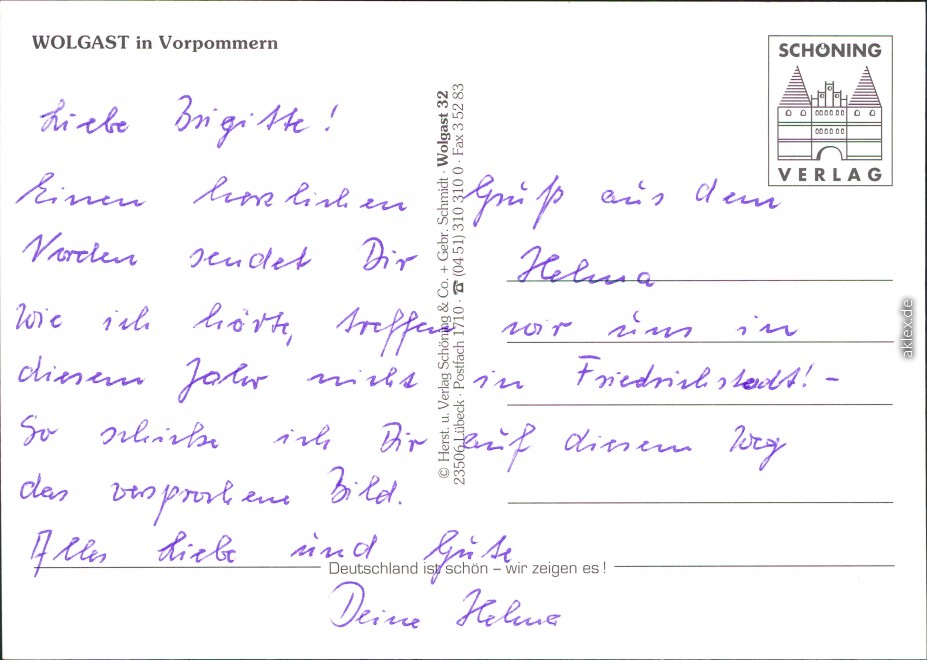 WOLGAST in Vorpommern
SCHÖNING
VERLAG
Liebe Brigitte!
Einen herzlichen Gruß aus dem
Norden sendet Dir Helma
Wie ich hörte, treffen wir uns in
diesem Jahr nicht in Friedrichstadt! -
So schicke ich Dir auf diesem Weg
das versprochene Bild.
Alles Liebe und Gute
Deine Helma
© Herst. u. Verlag Schöning & Co. + Gebr. Schmidt · Wolgast 32
23506 Lübeck · Postfach 1710 · ☎ (04 51) 310 310 0 · Fax 3 52 83
Deutschland ist schön – wir zeigen es !
aklex.de